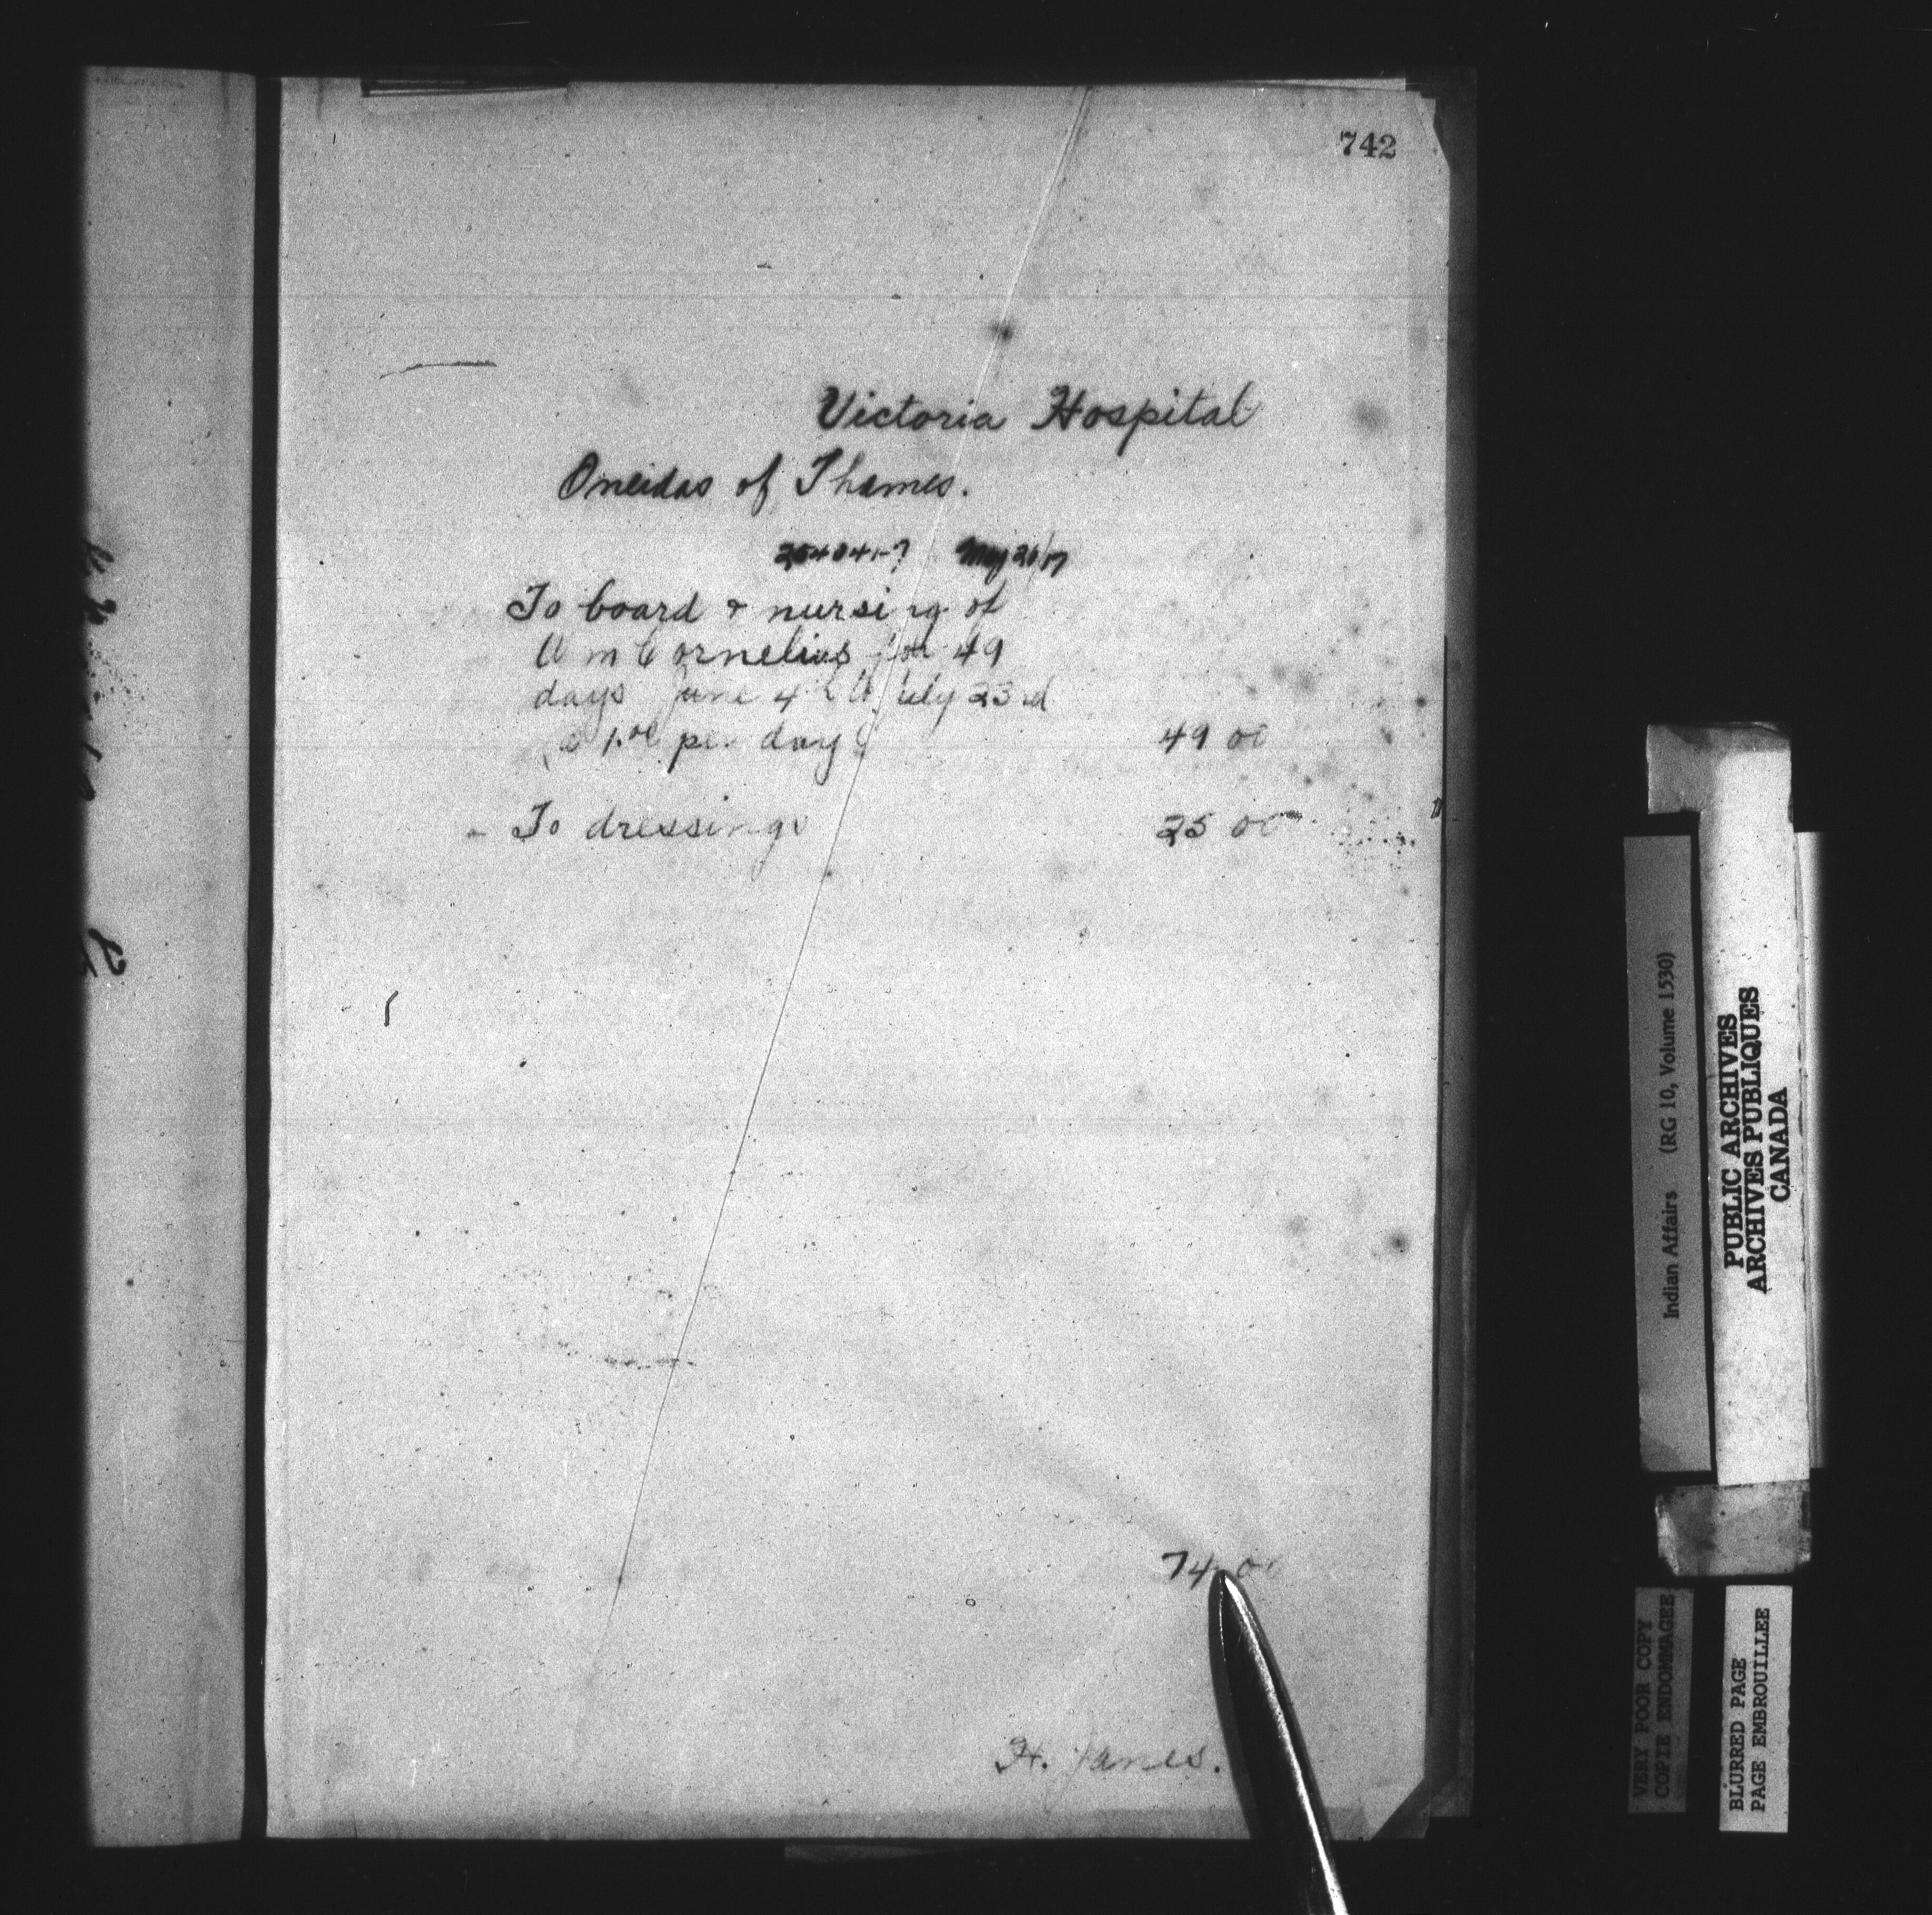 742
Victoria Hospital
Oneidas of Thames.
254041-7 May 26/17
To board & nursing of
Wm Cornelius for 49
days June 4th to July 23rd
@ 1.00 per day 49 00
To dressings 25 00
74 00
H. Janes.
Indian Affairs (RG 10, Volume 1530)
PUBLIC ARCHIVES
ARCHIVES PUBLIQUES
CANADA
VERY POOR COPY
COPIE ENDOMMAGEE
BLURRED PAGE
PAGE EMBROUILLEE